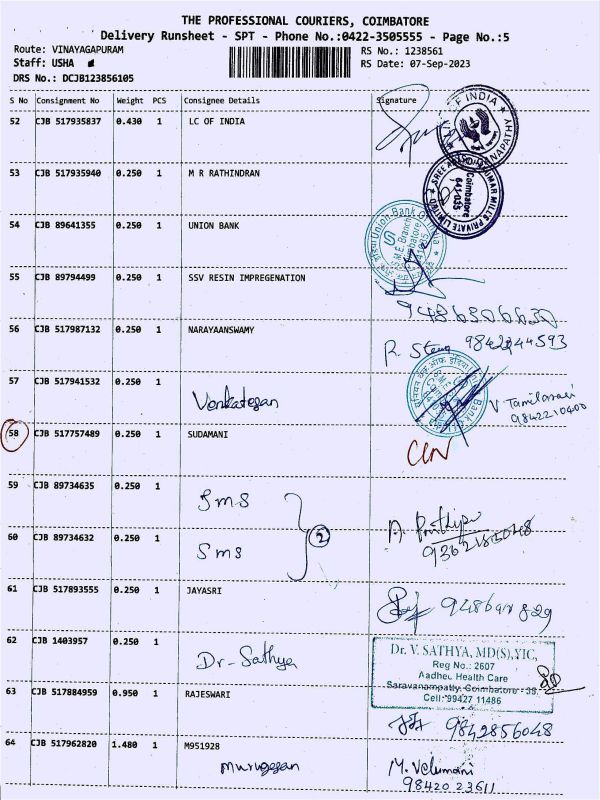 THE PROFESSIONAL COURIERS, COIMBATORE
Delivery Runsheet - SPT - Phone No.:0422-3505555 - Page No.:5
Route: VINAYAGAPURAM RS No.: 1238561
Staff: USHA RS Date: 07-Sep-2023
DRS No.: DCJB123856105
S No Consignment No Weight PCS Consignee Details Signature
52 CJB 517935837 0.430 1 LC OF INDIA
53 CJB 517935940 0.250 1 M R RATHINDRAN
Coimbatore
641035
54 CJB 89641355 0.250 1 UNION BANK
Union Bank Of India
55 CJB 89794499 0.250 1 SSV RESIN IMPREGENATION
56 CJB 517987132 0.250 1 NARAYAANSWAMY
57 CJB 517941532 0.250 1
Venkatesan
V Tamilarasi
9842210400
58 CJB 517757489 0.250 1 SUDAMANI
59 CJB 89734635 0.250 1
Sms
60 CJB 89734632 0.250 1
Sms
2
61 CJB 517893555 0.250 1 JAYASRI
62 CJB 1403957 0.250 1
Dr-Sathya
Dr. V. SATHYA, MD(S),YIC,
Reg No.: 2607
Aadhee Health Care
Saravanampatty, Coimbatore - 35.
Cell: 99427 11486
63 CJB 517884959 0.950 1 RAJESWARI
9842856048
64 CJB 517962820 1.480 1 M951928
Murugesan
M. Velumani
98420 23611